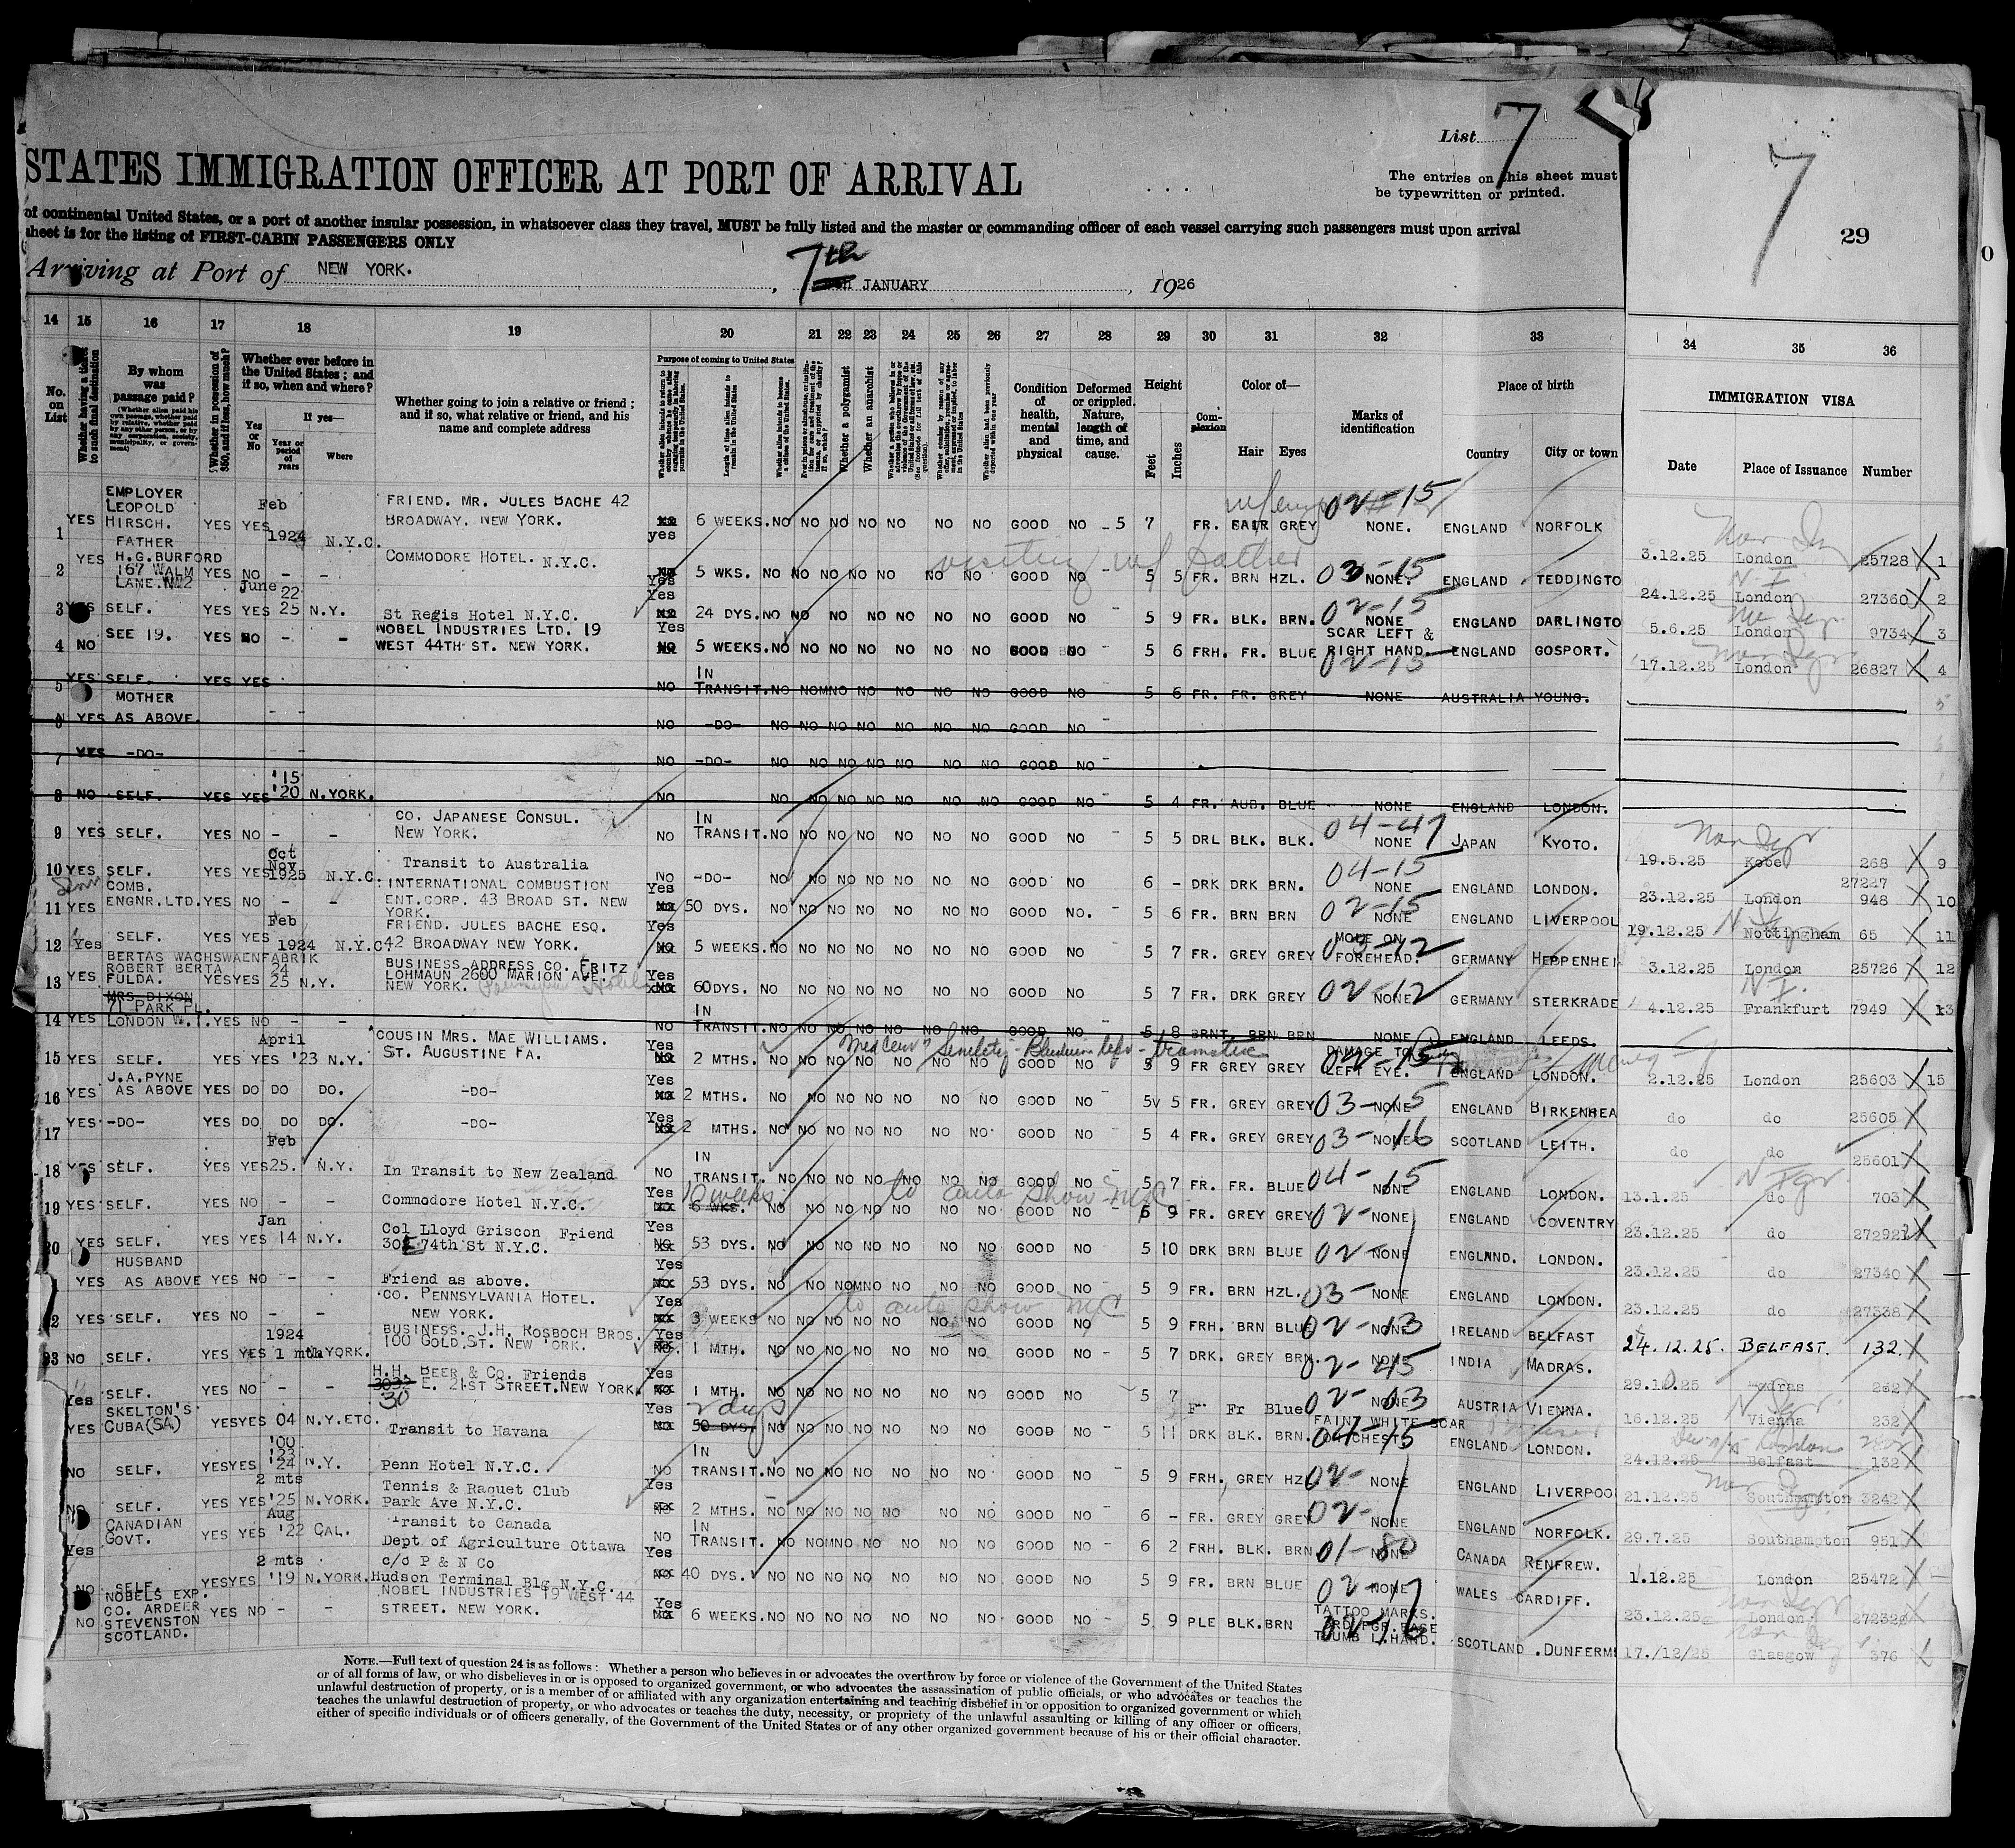 List 7
7
STATES IMMIGRATION OFFICER AT PORT OF ARRIVAL
The entries on this sheet must
be typewritten or printed.
29
of continental United States, or a port of another insular possession, in whatsoever class they travel, MUST be fully listed and the master or commanding officer of each vessel carrying such passengers must upon arrival
sheet is for the listing of FIRST-CABIN PASSENGERS ONLY
Arriving at Port of NEW YORK. , 7th JANUARY , 1926
14 15 16 17 18 19 20 21 22 23 24 25 26 27 28 29 30 31 32 33 34 35 36
No. on List
Whether having a ticket to such final destination
By whom was passage paid?
(Whether alien paid his own passage, whether paid by relative, whether paid by any other person, or by any corporation, society, municipality, or government)
Whether in possession of $50, and if less, how much?
Whether ever before in the United States; and if so, when and where?
Yes or No
If yes—
Year or period of years
Where
Whether going to join a relative or friend; and if so, what relative or friend, and his name and complete address
Purpose of coming to United States
Length of time alien intends to remain in the United States
Whether alien intends to become a citizen of the United States.
Whether a polygamist
Whether an anarchist
Condition of health, mental and physical
Deformed or crippled. Nature, length of time, and cause.
Height
Feet
Inches
Complexion
Color of—
Hair Eyes
Marks of identification
Place of birth
Country City or town
IMMIGRATION VISA
Date Place of Issuance Number
1 YES EMPLOYER LEOPOLD HIRSCH. YES YES Feb 1924 N.Y.C. FRIEND. MR. JULES BACHE 42 BROADWAY. NEW YORK. yes 6 WEEKS. NO NO NO NO NO NO NO GOOD NO - 5 7 FR. FAIR GREY 02-15 NONE. ENGLAND NORFOLK 3.12.25 London 25728 1
2 YES FATHER H.G. BURFORD 167 WALM LANE. NW2 YES NO - - COMMODORE HOTEL. N.Y.C. Yes 5 WKS. NO NO NO NO NO NO NO GOOD NO 5 5 FR. BRN HZL. 03-15 NONE. ENGLAND TEDDINGTO 24.12.25 London 27360 2
visiting w/ father
3 YES SELF. YES YES June 22 25 N.Y. St Regis Hotel N.Y.C. Yes 24 DYS. NO NO NO NO NO NO NO GOOD NO - 5 9 FR. BLK. BRN. 02-15 NONE ENGLAND DARLINGTO 5.6.25 London 9734 3
4 NO SEE 19. YES NO - - NOBEL INDUSTRIES LTD. 19 WEST 44TH ST. NEW YORK. Yes 5 WEEKS. NO NO NO NO NO NO NO GOOD NO 5 6 FRH. FR. BLUE SCAR LEFT & RIGHT HAND. 02-15 ENGLAND GOSPORT. 17.12.25 London 26827 4
5 YES SELF. YES YES NO IN TRANSIT. NO NO NO NO NO NO NO GOOD NO - 5 6 FR. FR. GREY NONE AUSTRALIA YOUNG. 5
6 YES MOTHER AS ABOVE. - - NO -DO- NO NO NO NO NO NO NO GOOD NO -
7 YES -DO- NO -DO- NO NO NO NO NO NO NO GOOD NO -
8 NO SELF. YES YES '15 '20 N.YORK. NO NO NO NO NO NO NO NO GOOD NO - 5 4 FR. AUB. BLUE NONE ENGLAND LONDON.
9 YES SELF. YES NO - - CO. JAPANESE CONSUL. NEW YORK. NO IN TRANSIT. NO NO NO NO NO NO NO GOOD NO 5 5 DRL BLK. BLK. 04-47 NONE JAPAN KYOTO. 19.5.25 Kobe 268 9
10 YES SELF. YES YES Oct Nov 1925 N.Y.C. Transit to Australia NO -DO- NO NO NO NO NO NO NO GOOD NO 6 - DRK DRK BRN. 04-15 NONE ENGLAND LONDON. 23.12.25 London 27227 948 10
11 YES COMB. ENGNR. LTD. YES NO - - INTERNATIONAL COMBUSTION ENT. CORP. 43 BROAD ST. NEW YORK. Yes 50 DYS. NO NO NO NO NO NO NO GOOD NO. - 5 6 FR. BRN BRN 02-15 NONE ENGLAND LIVERPOOL 19.12.25 Nottingham 65 11
12 Yes SELF. YES YES Feb 1924 N.Y.C. FRIEND. JULES BACHE ESQ. 42 BROADWAY NEW YORK. Yes 5 WEEKS. NO NO NO NO NO NO NO GOOD NO 5 7 FR. GREY GREY MOLE ON FOREHEAD. 02-12 GERMANY HEPPENHEI 3.12.25 London 25726 12
13 YES BERTAS WACHSWAENFABRIK ROBERT BERTA FULDA. YES YES 24 25 N.Y. BUSINESS ADDRESS CO. FRITZ LOHMAUN 2600 MARION AVE. NEW YORK. Yes 60 DYS. NO NO NO NO NO NO NO GOOD NO 5 7 FR. DRK GREY 02-12 NONE GERMANY STERKRADE 4.12.25 Frankfurt 7949 13
14 YES MRS. DIXON 71 PARK PL. LONDON W.1. YES NO - - NO IN TRANSIT. NO NO NO NO NO NO NO GOOD NO 5 8 BRNT. BRN BRN NONE ENGLAND LEEDS.
15 YES SELF. YES YES April '23 N.Y. COUSIN MRS. MAE WILLIAMS. ST. AUGUSTINE FA. Yes 2 MTHS. NO NO NO NO NO NO NO GOOD NO - 5 9 FR GREY GREY DAMAGE TO LEFT EYE. 02-15 ENGLAND LONDON. 2.12.25 London 25603 15
16 YES J.A. PYNE AS ABOVE YES DO DO DO. -DO- Yes 2 MTHS. NO NO NO NO NO NO NO GOOD NO 5 5 FR. GREY GREY 03-15 NONE ENGLAND BIRKENHEA do do 25605
17 YES -DO- YES DO DO DO. -DO- Yes 2 MTHS. NO NO NO NO NO NO NO GOOD NO 5 4 FR. GREY GREY 03-16 NONE SCOTLAND LEITH. do do 25601
18 YES SELF. YES YES Feb 25. N.Y. In Transit to New Zealand NO IN TRANSIT. NO NO NO NO NO NO NO GOOD NO - 5 7 FR. FR. BLUE 04-15 NONE ENGLAND LONDON. 13.1.25 do 703
19 YES SELF. YES NO - - Commodore Hotel N.Y.C. Yes 10 weeks 6 WKS. NO NO NO NO NO NO NO GOOD NO - 6 9 FR. GREY GREY 02- NONE ENGLAND COVENTRY 23.12.25 do 27292
to auto show NYC
20 YES SELF. YES YES Jan 14 N.Y. Col Lloyd Griscon Friend 30E 74th St N.Y.C. Yes 53 DYS. NO NO NO NO NO NO NO GOOD NO 5 10 DRK BRN BLUE 02- NONE ENGLAND. LONDON. 23.12.25 do 27340
1 YES HUSBAND AS ABOVE YES NO - - Friend as above. Yes 53 DYS. NO NO NO NO NO NO NO GOOD NO - 5 9 FR. BRN HZL. 03- NONE ENGLAND LONDON. 23.12.25 do 27338
2 YES SELF. YES NO - - CO. PENNSYLVANIA HOTEL. NEW YORK. Yes 3 WEEKS NO NO NO NO NO NO NO GOOD NO 5 9 FRH. BRN BLUE 02-13 NONE IRELAND BELFAST 24.12.25. BELFAST. 132.
to auto show NYC
23 NO SELF. YES YES 1924 1 mth YORK. BUSINESS. J.H. ROSBOCH BROS. 100 GOLD ST. NEW YORK. Yes 1 MTH. NO NO NO NO NO NO NO GOOD NO - 5 7 DRK. GREY BRN. 02-45 NONE INDIA MADRAS. 29.10.25 Madras 262
Yes SELF. YES NO - - H.H. BEER & CO. Friends 30 E. 21ST STREET. NEW YORK. Yes 1 MTH. NO NO NO NO NO NO NO GOOD NO 5 7 F Fr Blue 02-03 NONE AUSTRIA VIENNA. 16.12.25 Vienna 232
YES SKELTON'S CUBA (SA) YES YES 04 N.Y. ETC. Transit to Havana Yes 2 days 50 DYS. NO NO NO NO NO NO NO GOOD NO - 5 11 DRK BLK. BRN. FAINT WHITE SCAR ON CHEST 04-15 ENGLAND LONDON. 24.12.25 Belfast 132
NO SELF. YES YES '00 '23 '24 N.Y. Penn Hotel N.Y.C. NO IN TRANSIT. NO NO NO NO NO NO NO GOOD NO 5 9 FRH. GREY HZ 02- NONE ENGLAND LIVERPOOL 21.12.25 Southampton 3242
NO SELF. YES YES 2 mts '25 N.YORK. Tennis & Raquet Club Park Ave N.Y.C. Yes 2 MTHS. NO NO NO NO NO NO NO GOOD NO 6 - FR. GREY GREY 02- NONE ENGLAND NORFOLK. 29.7.25 Southampton 951
Yes CANADIAN GOVT. YES YES Aug '22 CAL. Transit to Canada Dept of Agriculture Ottawa NO IN TRANSIT. NO NO NO NO NO NO NO GOOD NO - 6 2 FRH. BLK. BRN 01-80 NONE CANADA RENFREW. 1.12.25 London 25472
NO SELF. YES YES 2 mts '19 N.YORK. c/o P & N Co Hudson Terminal Blg N.Y.C. Yes 40 DYS. NO NO NO NO NO NO NO GOOD NO 5 9 FR. BRN BLUE 02-17 NONE WALES CARDIFF. 23.12.25 London. 27232
NO NOBELS EXP. CO. ARDEER STEVENSTON SCOTLAND. YES NO - - NOBEL INDUSTRIES 19 WEST 44 STREET. NEW YORK. Yes 6 WEEKS. NO NO NO NO NO NO NO GOOD NO - 5 9 PLE BLK. BRN TATTOO MARKS. THUMB L. HAND. 02-16 SCOTLAND. DUNFERM 17./12/25 Glasgow 376
NOTE.—Full text of question 24 is as follows: Whether a person who believes in or advocates the overthrow by force or violence of the Government of the United States
or of all forms of law, or who disbelieves in or is opposed to organized government, or who advocates the assassination of public officials, or who advocates or teaches the
unlawful destruction of property, or is a member of or affiliated with any organization entertaining and teaching disbelief in or opposition to organized government or which
teaches the unlawful destruction of property, or who advocates or teaches the duty, necessity, or propriety of the unlawful assaulting or killing of any officer or officers,
either of specific individuals or of officers generally, of the Government of the United States or of any other organized government because of his or their official character.